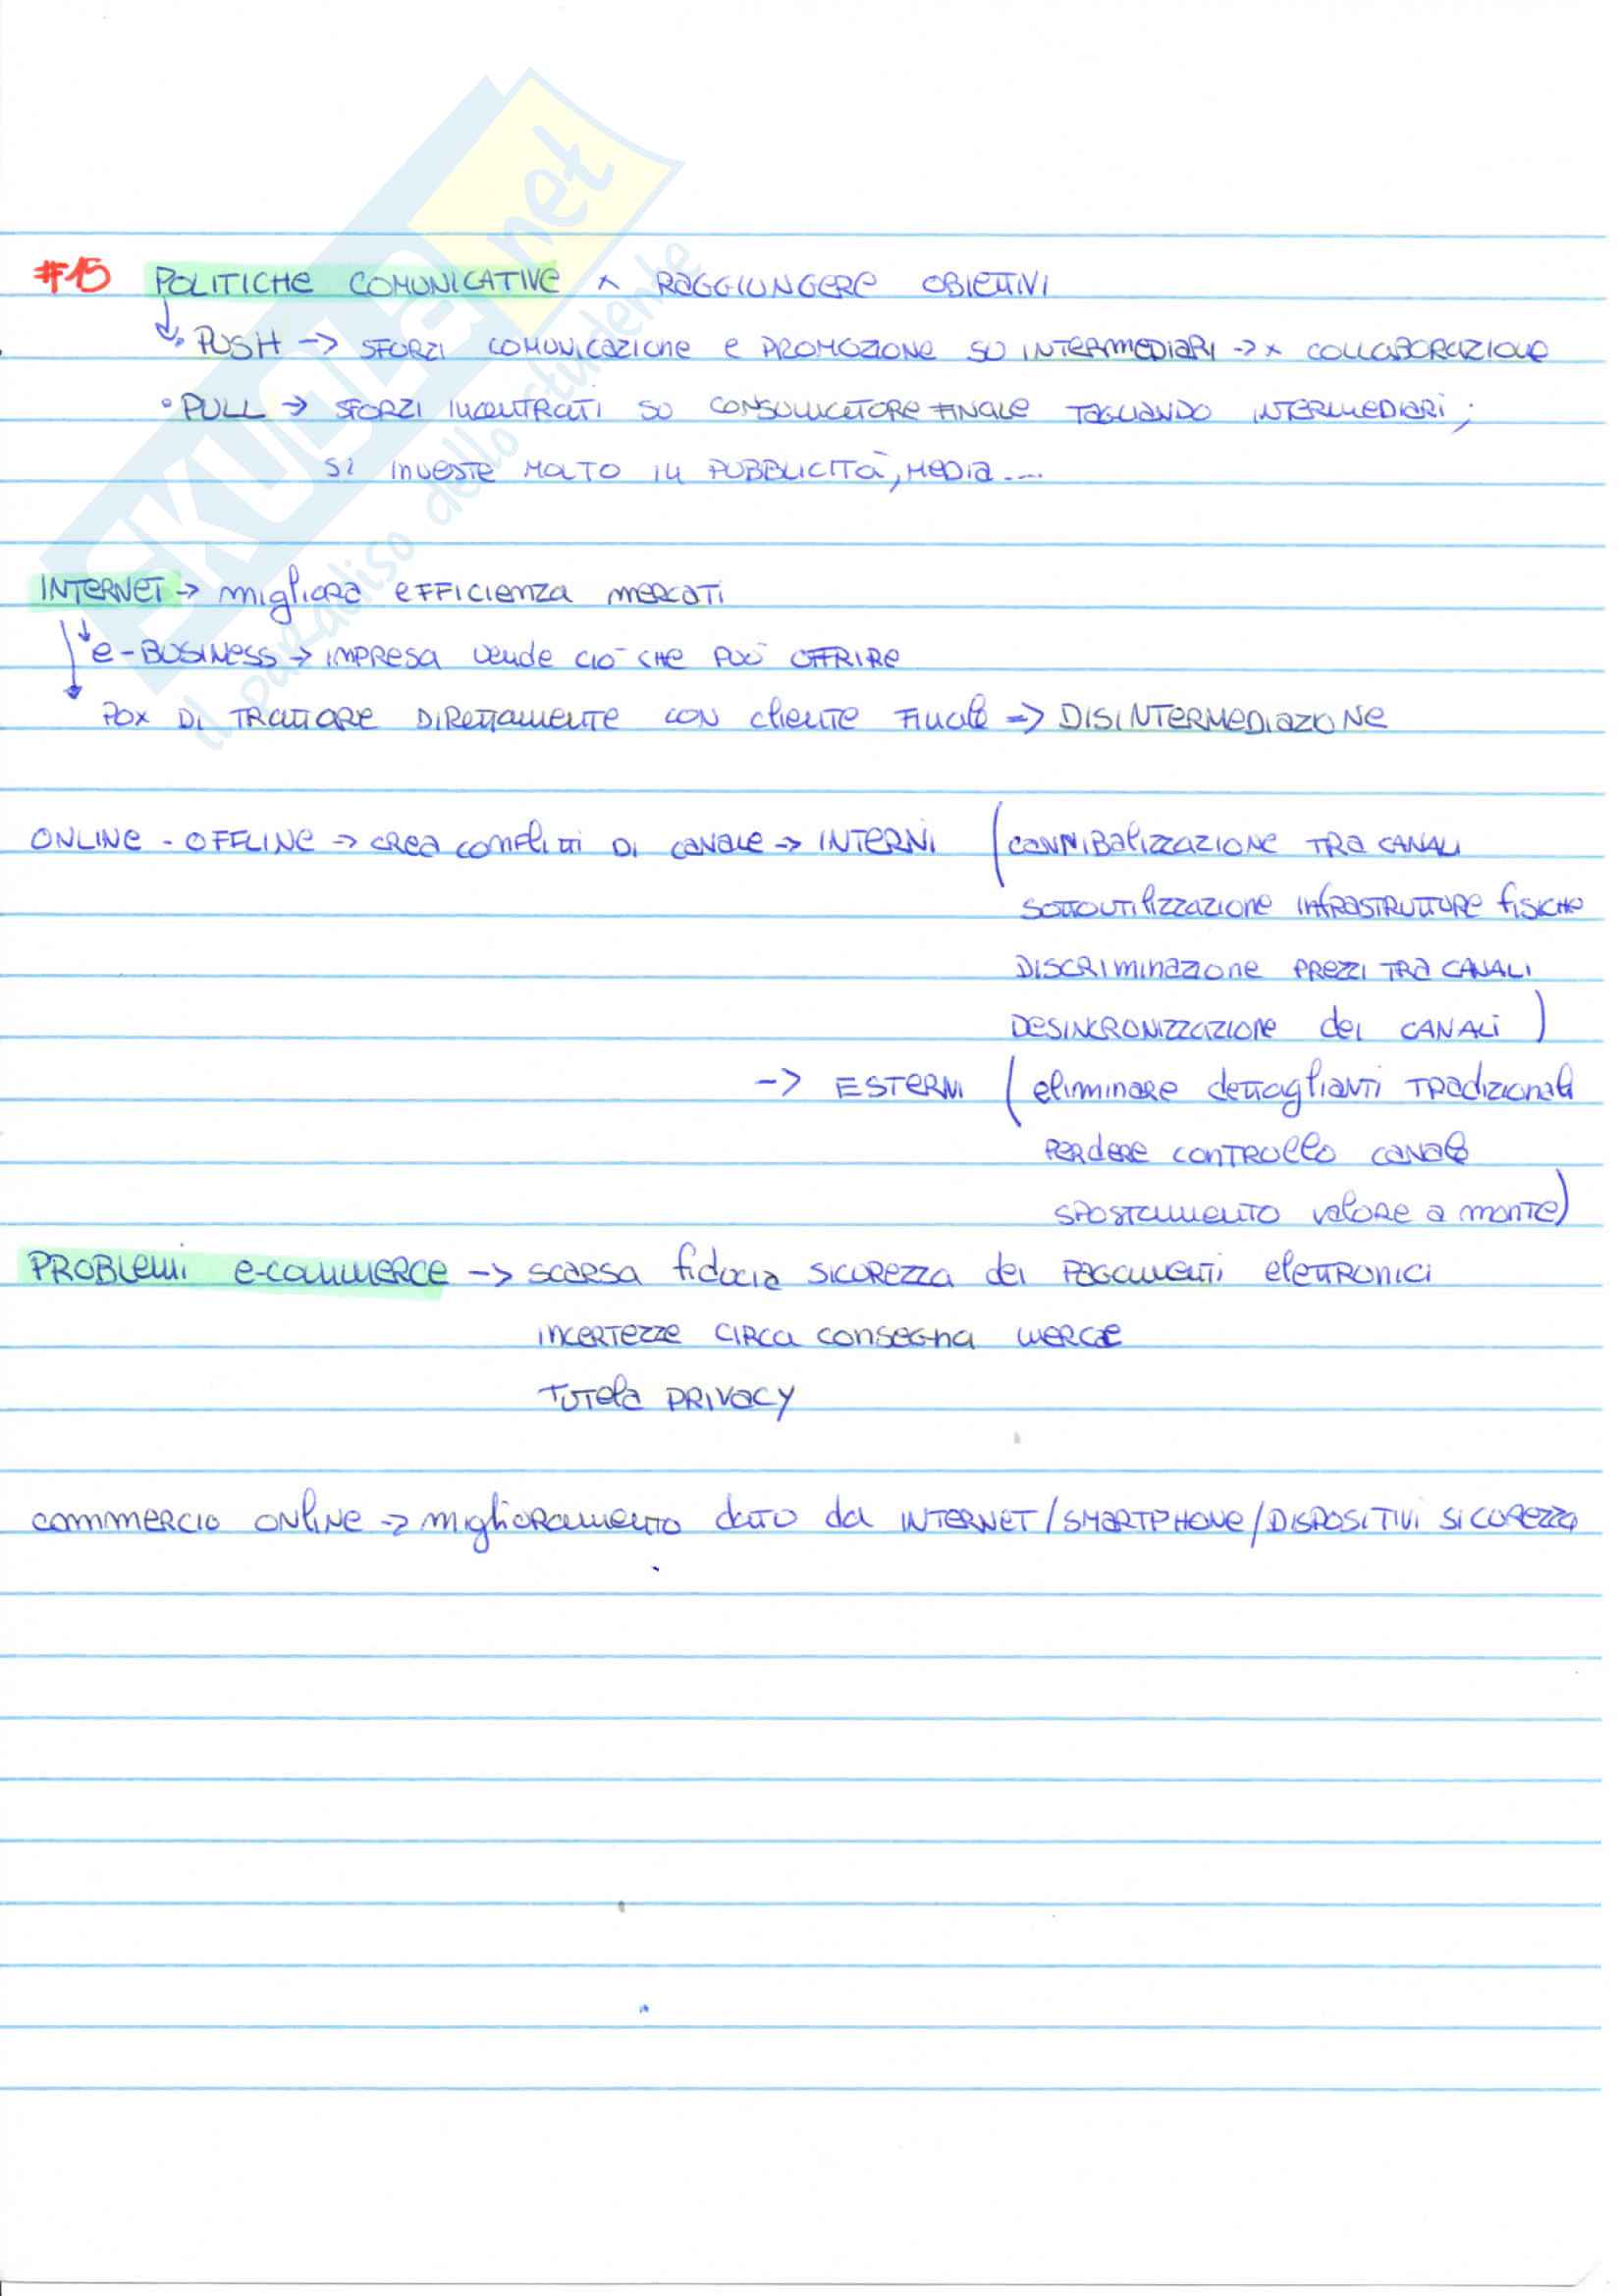 #15 POLITICHE COMUNICATIVE x RAGGIUNGERE OBIETTIVI
• PUSH -> SFORZI COMUNICAZIONE e PROMOZIONE SU INTERMEDIARI -> x COLLABORAZIONE
• PULL -> SFORZI INCENTRATI SU CONSUMATORE FINALE TAGLIANDO INTERMEDIARI;
SI INVESTE MOLTO IN PUBBLICITÀ, MEDIA....
INTERNET -> migliora EFFICIENZA MERCATI
e-BUSINESS -> IMPRESA VENDE CIÒ CHE PUÒ OFFRIRE
POX DI TRATTARE DIRETTAMENTE CON CLIENTE FINALE => DISINTERMEDIAZIONE
ONLINE - OFFLINE -> CREA CONFLITTI DI CANALE -> INTERNI (CANNIBALIZZAZIONE TRA CANALI
SOTTOUTILIZZAZIONE INFRASTRUTTURE FISICHE
DISCRIMINAZIONE PREZZI TRA CANALI
DESINCRONIZZAZIONE DEI CANALI)
-> ESTERNI (ELIMINARE DETTAGLIANTI TRADIZIONALI
PERDERE CONTROLLO CANALE
SPOSTAMENTO VALORE A MONTE)
PROBLEMI e-COMMERCE -> SCARSA FIDUCIA SICUREZZA DEI PAGAMENTI ELETTRONICI
INCERTEZZE CIRCA CONSEGNA MERCE
TUTELA PRIVACY
COMMERCIO ONLINE -> MIGLIORAMENTO DATO DA INTERNET/SMARTPHONE/DISPOSITIVI SICUREZZA
SKUOLA.net
il paradiso dello studente